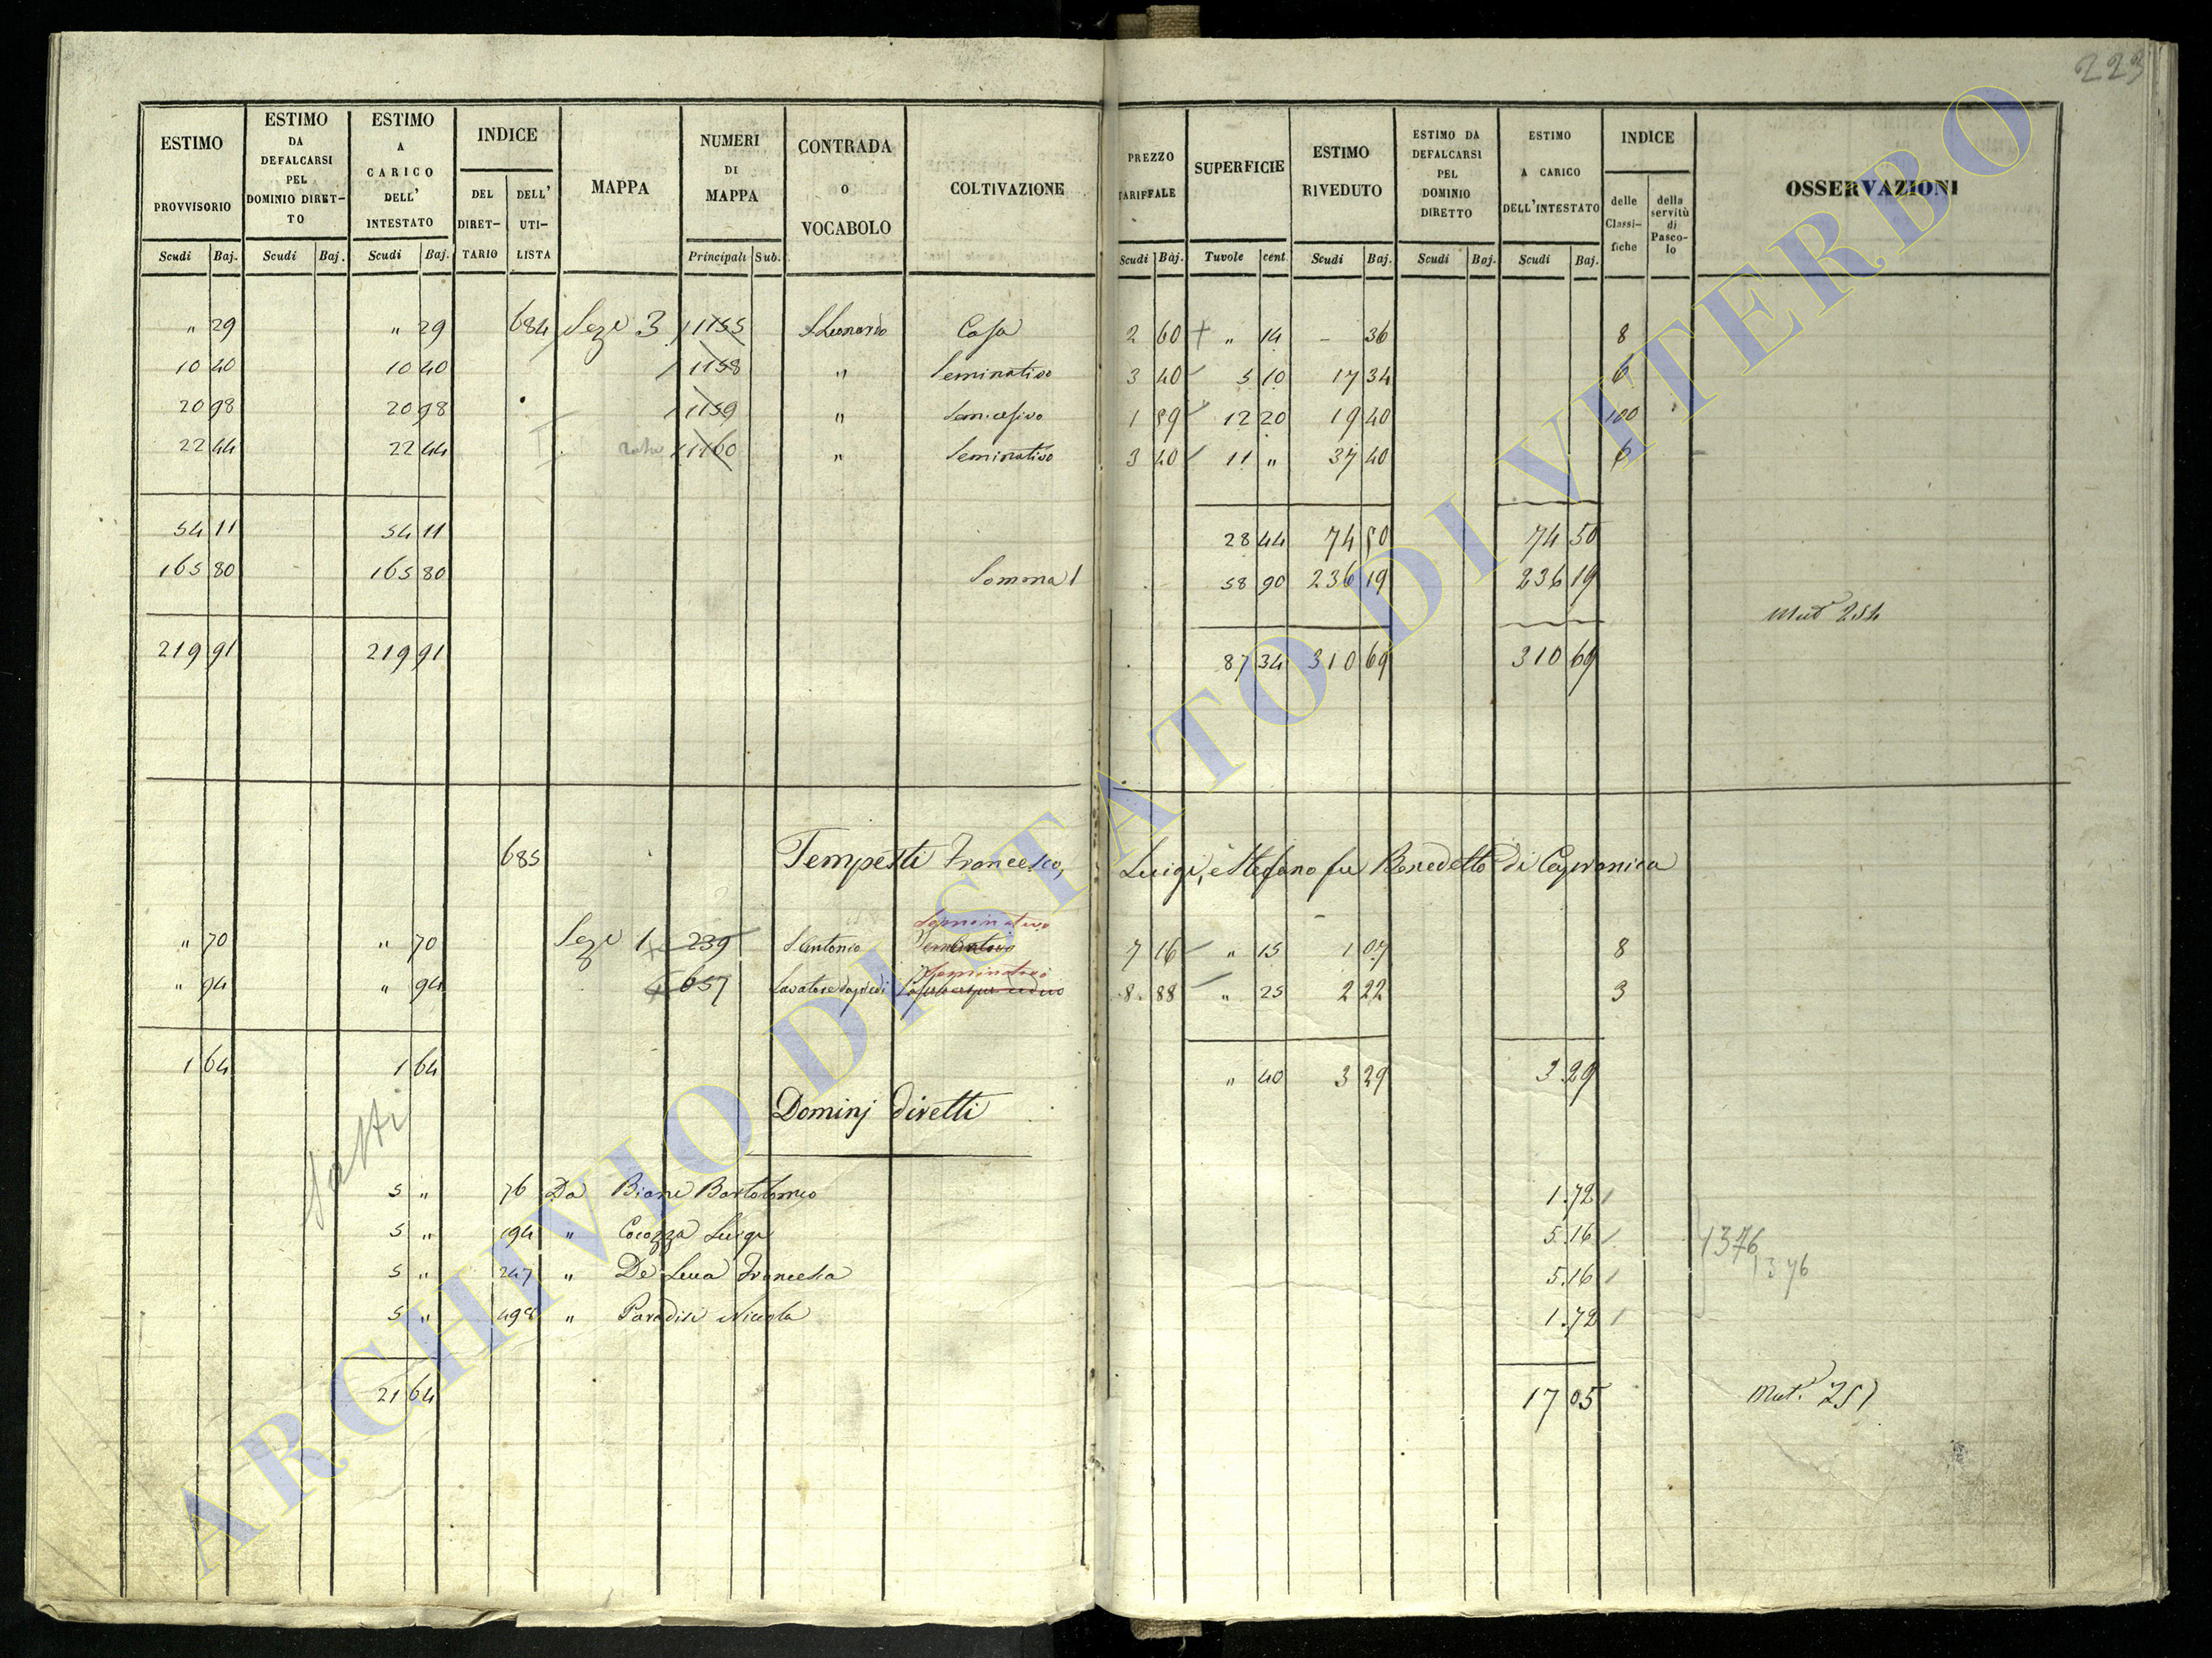 223
ESTIMO PROVVISORIO | ESTIMO DA DEFALCARSI PEL DOMINIO DIRETTO | ESTIMO A CARICO DELL' INTESTATO | INDICE DEL DIRETTARIO | DELL' UTILISTA | MAPPA | NUMERI DI MAPPA | CONTRADA O VOCABOLO | COLTIVAZIONE | PREZZO TARIFFALE | SUPERFICIE | ESTIMO RIVEDUTO | ESTIMO DA DEFALCARSI PEL DOMINIO DIRETTO | ESTIMO A CARICO DELL'INTESTATO | INDICE delle Classifiche | della servitù di Pascolo | OSSERVAZIONI
Scudi | Baj. | Scudi | Baj. | Scudi | Baj. | Principali | Sub. | Scudi | Baj. | Tavole | cent. | Scudi | Baj. | Scudi | Baj. | Scudi | Baj.
" 29 | " 29 | 684 | Seze 3 | 1155 | S. Leonardo | Casa | 2 60 | " 14 | - 36 | 8
10 40 | 10 40 | 1158 | " | Seminativo | 3 40 | 5 10 | 17 34 | 6
20 98 | 20 98 | 1159 | " | 1 59 | 12 20 | 19 40 | 100
22 44 | 22 44 | 1160 | " | Seminativo | 3 40 | 11 " | 37 40 | 6
54 11 | 54 11 | 28 44 | 74 50 | 74 50
165 80 | 165 80 | Somma | 58 90 | 236 19 | 236 19
Mut 254
219 91 | 219 91 | 87 34 | 310 69 | 310 69
685 Tempesti Francesco, Luigi, e Stefano fu Benedetto di Capranica
Seminativo
" 70 | " 70 | Seze 1 | 239 | S. Antonio | 7 16 | " 15 | 1 07 | 8
Seminativo
" 94 | " 94 | 657 | 8 88 | " 25 | 2 22 | 3
1 64 | 1 64 | " 40 | 3 29 | 3 29
Dominj diretti
5 " | 76 | Da Bartolomeo | 1.72
5 " | 194 | " Cocozza Luigi | 5.16 | 1376
5 " | 247 | " De Luca Francesca | 5.16 | 1376
5 " | 498 | " Paradisi Niccola | 1.72
21 64 | 17 05 | Mut. 251
ARCHIVIO DI STATO DI VITERBO